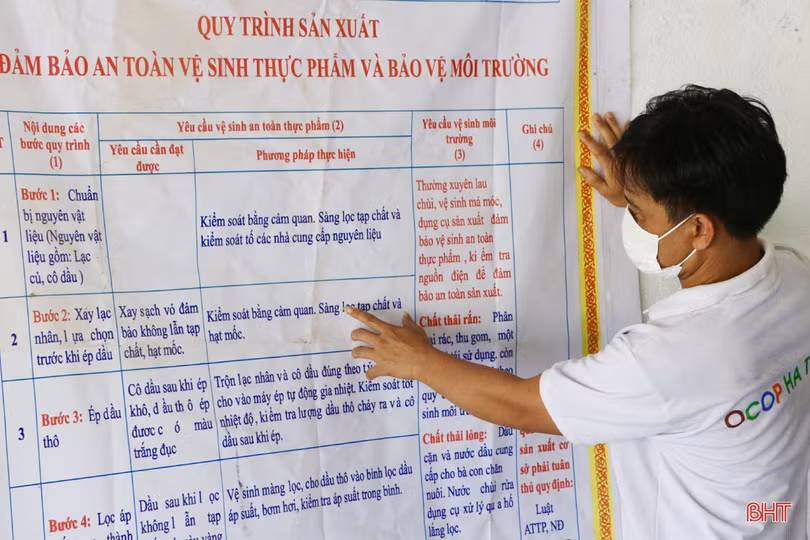 QUY TRÌNH SẢN XUẤT
ĐẢM BẢO AN TOÀN VỆ SINH THỰC PHẨM VÀ BẢO VỆ MÔI TRƯỜNG
T
Nội dung các
bước quy trình
(1)
Yêu cầu vệ sinh an toàn thực phẩm (2)
Yêu cầu cần đạt
được
Phương pháp thực hiện
Yêu cầu vệ sinh môi
trường
(3)
Ghi chú
(4)
1
Bước 1: Chuẩn
bị nguyên vật
liệu (Nguyên vật
liệu gồm: Lạc
củ, cô dầu )
Kiểm soát bằng cảm quan. Sàng lọc tạp chất và
kiểm soát tố các nhà cung cấp nguyên liệu
Thường xuyên lau
chùi, vệ sinh má móc,
dụng cụ sản xuất đảm
bảo vệ sinh an toàn
thực phẩm , ki ểm tra
nguồn điện để đảm
bảo an toàn sản xuất.
2
Bước 2: Xáy lạc
nhân, l ựa chọn
trước khi ép dầu
Xay sạch vỏ đảm
bảo không lẫn tạp
chất, hạt mốc.
Kiểm soát bằng cảm quan. Sàng lọc tạp chất và
hạt mốc.
Chất thải rắn: Phân
ại rác, thu gom, một
tái sử dụng, còn
quy
sinh môi
3
Bước 3: Ép dầu
thô
Cô dầu sau khi ép
khô, d ầu th ô ép
được c ó màu
trắng đục
Trộn lạc nhân và cô dầu đúng theo
cho vào máy ép tự động gia nhiệt. Kiểm soát tốt
nhiệt độ , kiểm tra lượng dầu thô chảy ra và cô
dầu sau khi ép.
Chất thải lỏng: Dầu
cặn và nước dầu cung
cấp cho bà con chăn
nuôi. Nước chùi rửa
được xử lý qu a hố
lắng lọc.
sản xuất cơ
sở phải tuân
thủ quy định:
Luật
ATTP, NĐ
Bước 4: Lọc áp
thành
Dầu sau khi l ọc
không l ẫn tạp
Vệ sinh màng lọc, cho dầu thô vào bình lọc dầu
áp suất, bơm hơi, kiểm tra áp suất trong bình.
OCOP HÀ T
BHT